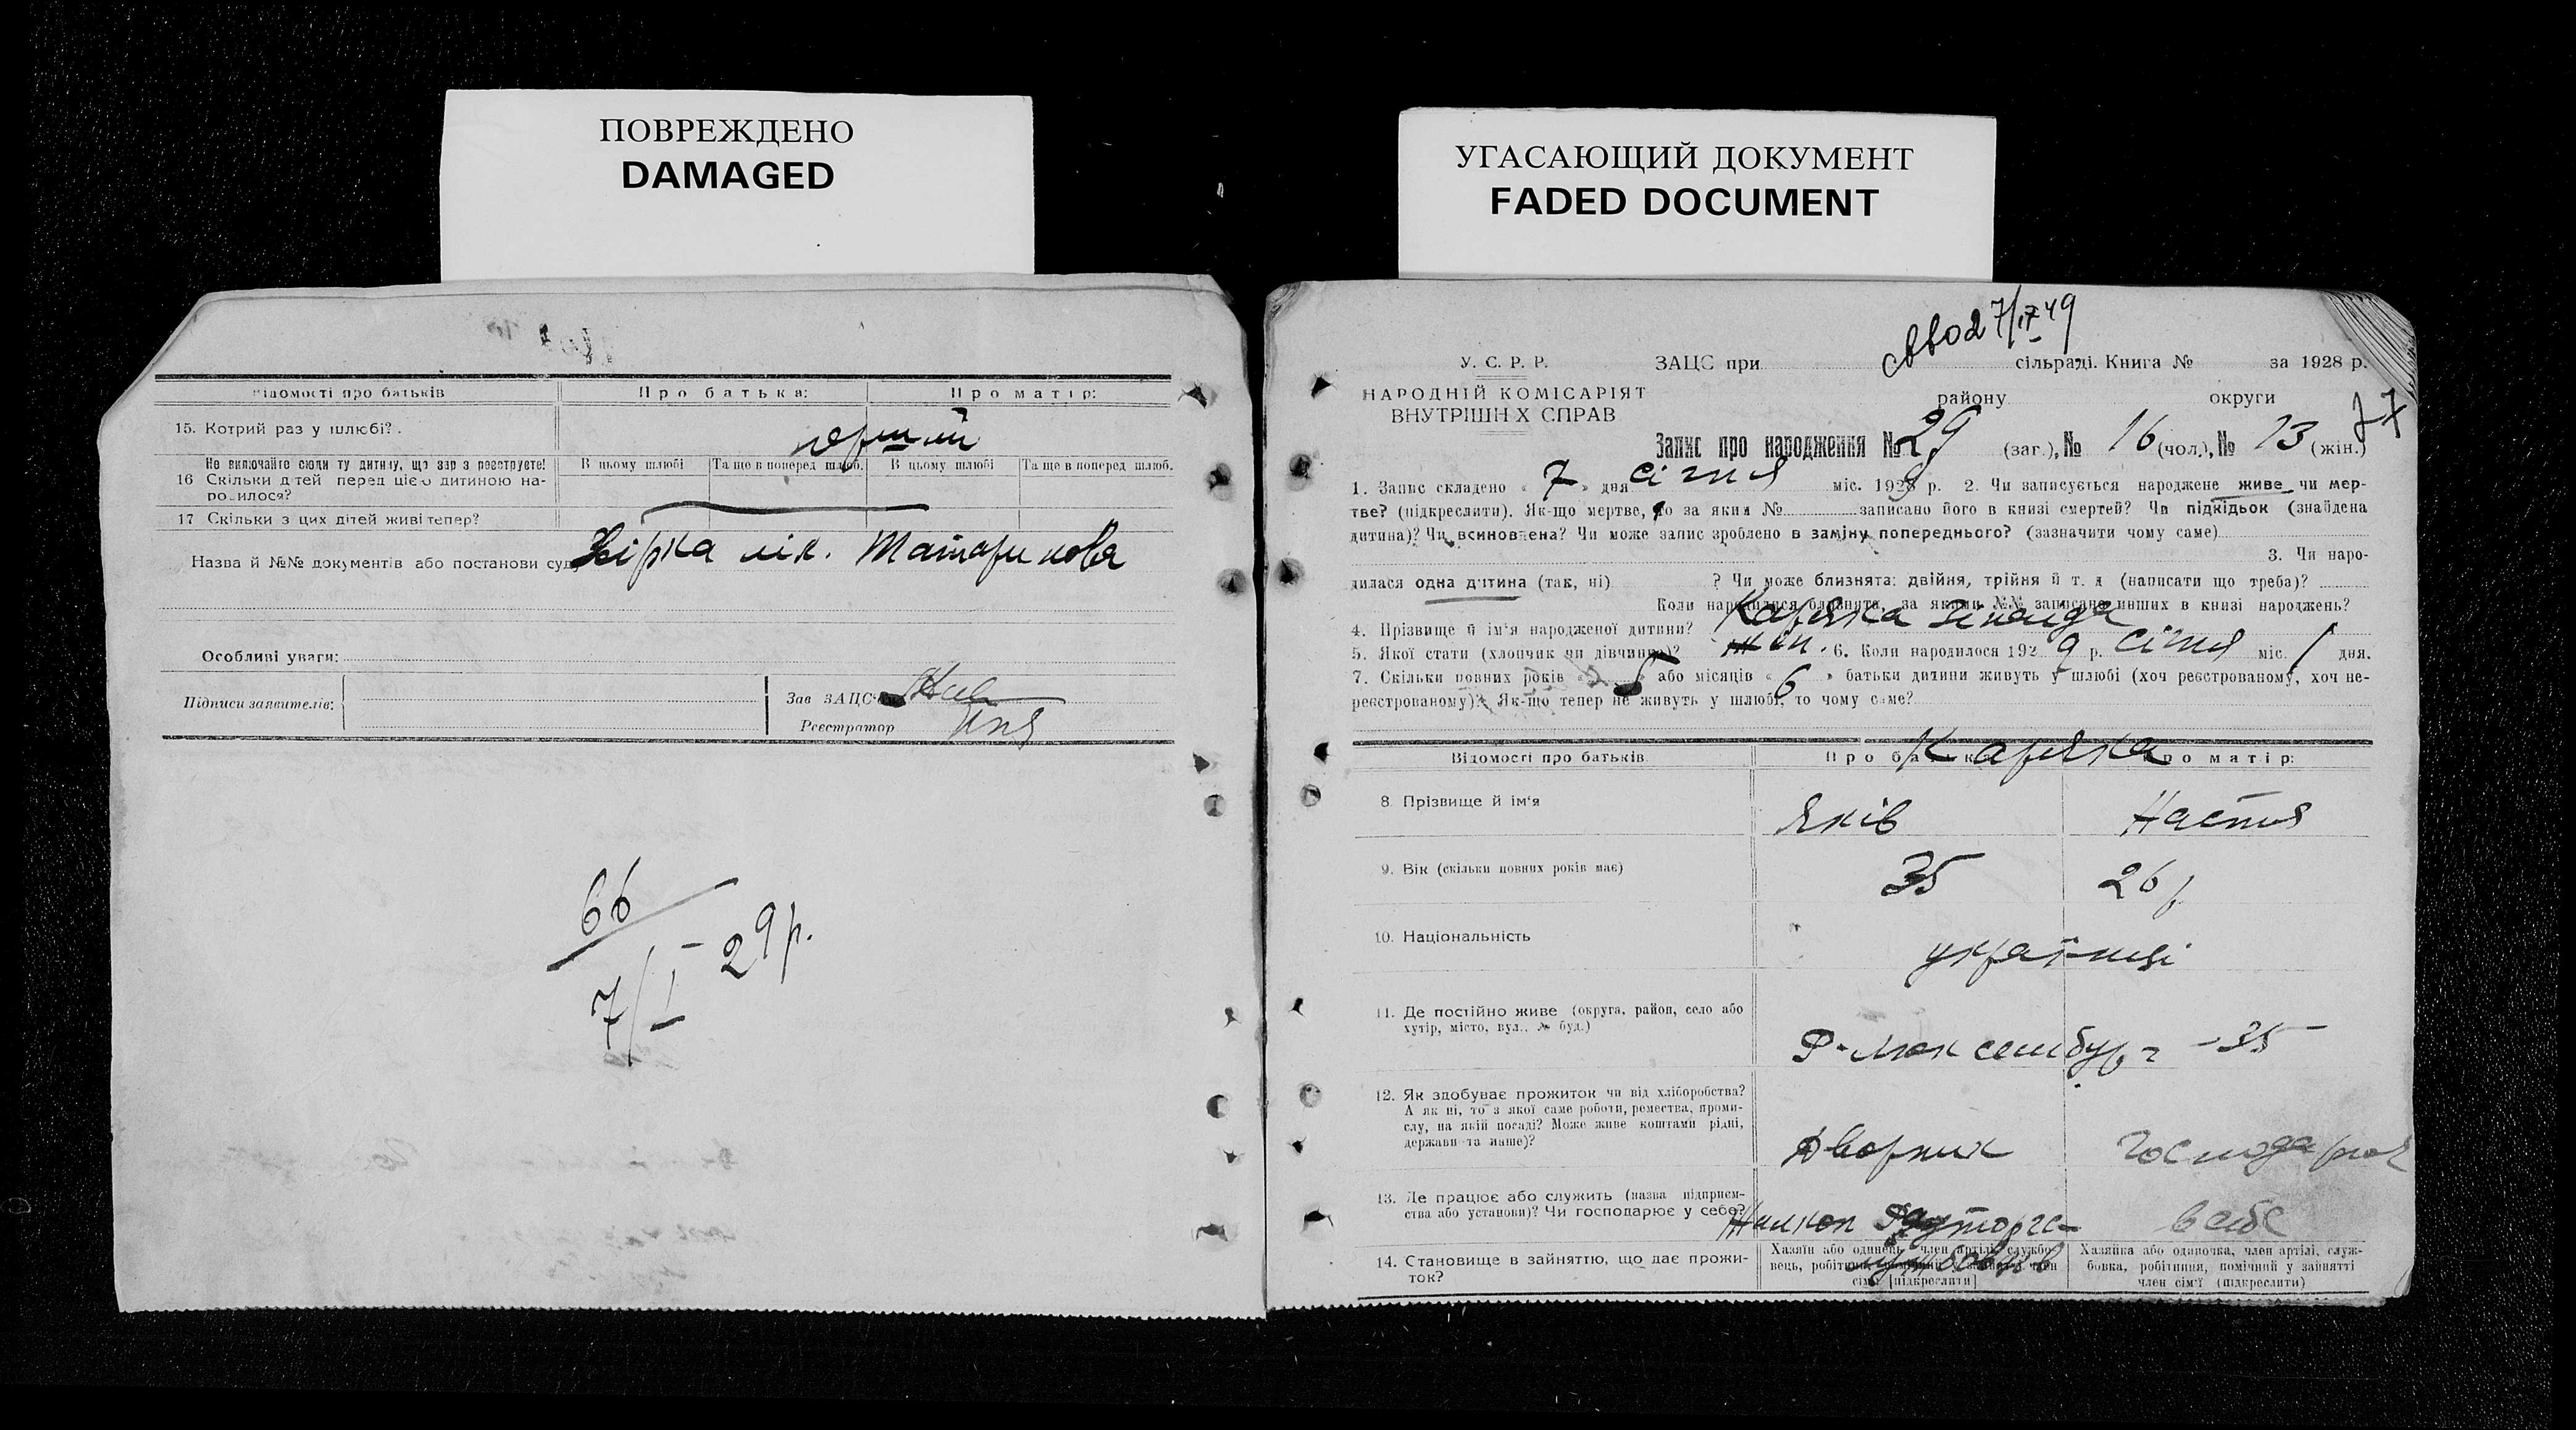 ПОВРЕЖДЕНО
DAMAGED
відомості про батьків
Про батька:
Про матір:
15. Котрий раз у шлюбі?
перший
Не включайте сюди ту дитину, що зараз реєструєте!
В цьому шлюбі
Та ще в поперед. шлюб.
В цьому шлюбі
Та ще в поперед. шлюб.
16 Скільки дітей перед цією дитиною на-
родилося?
17 Скільки з цих дітей живі тепер?
Назва й №№ документів або постанови суду
Особливі уваги:
Підписи заявителів:
Зав ЗАЦС'ом
Реєстратор
66
7/I - 29 р.
УГАСАЮЩИЙ ДОКУМЕНТ
FADED DOCUMENT
7/IV 49
У. С. Р. Р.
ЗАЦС при сільраді. Книга № за 1928 р.
НАРОДНІЙ КОМІСАРІЯТ
ВНУТРІШНІХ СПРАВ
району округи
77
Запис про народження № 29 (заг.), № 16 (чол.), № 13 (жін.)
1. Запис складено « 7 » дня січня міс. 1929 р. 2. Чи записується народжене живе чи мер-
тве? (підкреслити). Як-що мертве, то за яким № записано його в книзі смертей? Чи підкідьок (знайдена
дитина)? Чи всиновлена? Чи може запис зроблено в заміну попереднього? (зазначити чому саме)
3. Чи наро-
дилася одна дитина (так, ні) ? Чи може близнята: двійня, трійня й т. д (написати що треба)?
Коли народилися близнята, за якими №№ записано инших в книзі народжень?
4. Прізвище й ім'я народженої дитини? Каряка Зінаида
5. Якої стати (хлопчик чи дівчина)? жін. 6. Коли народилося 1929 р. січня міс. 1 дня.
7. Скільки повних років « 5 » або місяців « 6 » батьки дитини живуть у шлюбі (хоч реєстрованому, хоч не-
реєстрованому)? Як-що тепер не живуть у шлюбі, то чому саме?
Відомості про батьків
Про батька
Про матір:
Каряка
8. Прізвище й ім'я
Яків
Настя
9. Вік (скільки повних років має)
35
26 р
10. Національність
українці
11. Де постійно живе (округа, район, село або
хутір, місто, вул., № буд.)
Р-Люксембург - 35
12. Як здобуває прожиток чи від хліборобства?
А як ні, то з якої саме роботи, ремества, проми-
слу, на якій посаді? Може живе коштами рідні,
держави та инше)?
Дворник
Господарює
13. Де працює або служить (назва підприєм-
ства або установи)? Чи господарює у себе?
в себе
14. Становище в зайняттю, що дає прожи-
ток?
Хазяїн або одинець, член артілі, службо-
вець, робітник, помічний у зайнятті член
сім'ї [підкреслити]
Хазяйка або одиночка, член артілі, служ-
бовка, робітниця, помічний у зайнятті
член сім'ї (підкреслити)